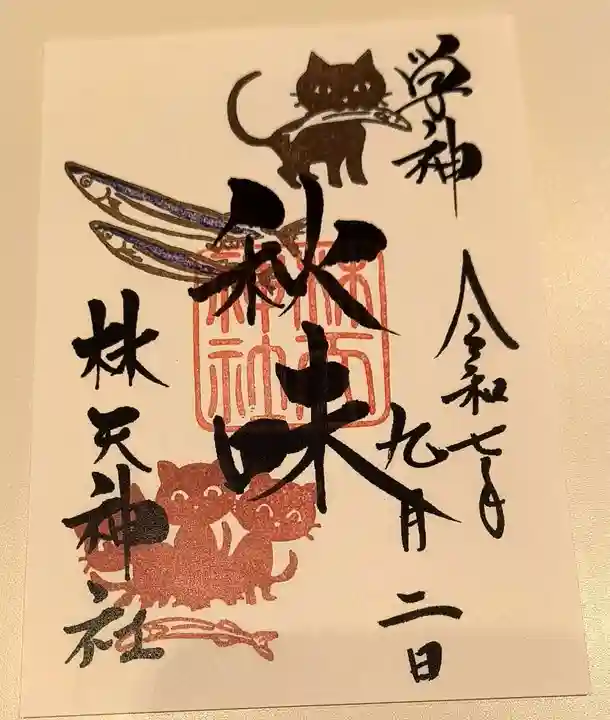 学神
令和七年
九月二日
秋味
林天神社
林天神社